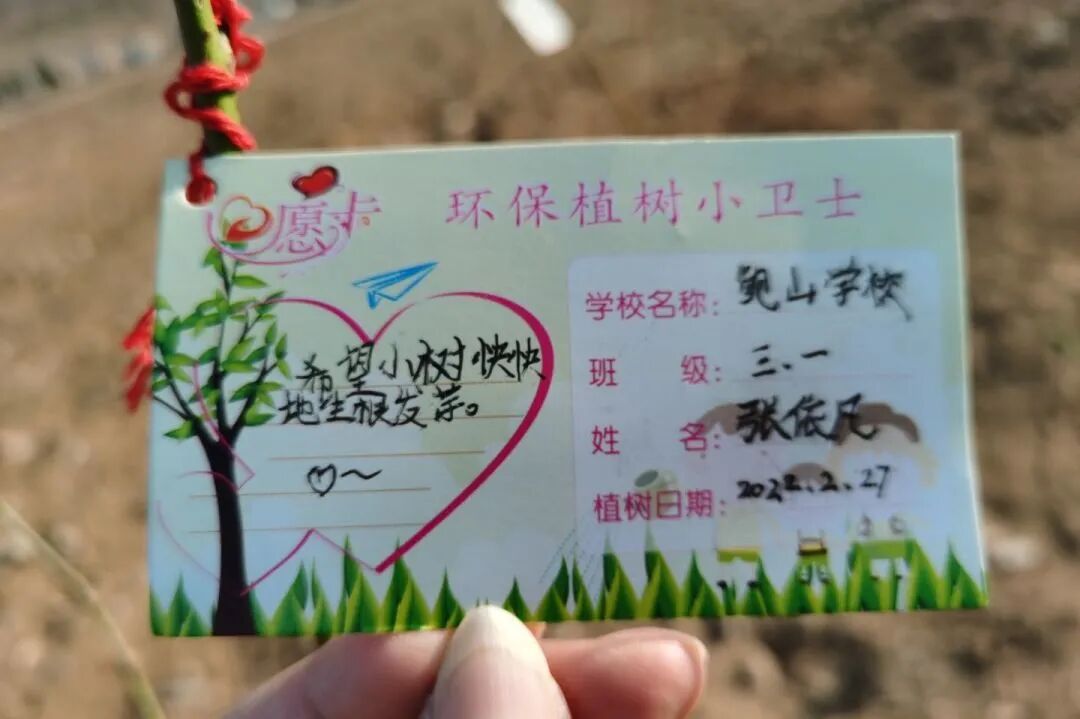 愿卡
环保植树小卫士
希望小树快快
地生根发芽。
学校名称：鲍山学校
班 级：三、一
姓 名：张依凡
植树日期：2022.2.27